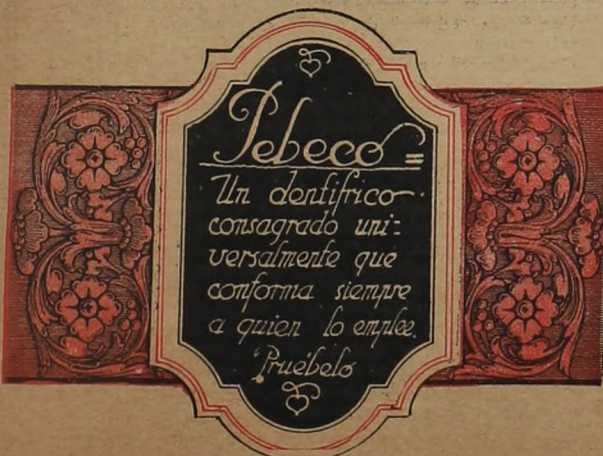 Pebeco=
Un dentífrico
consagrado uni-
versalmente que
conforma siempre
a quien lo emplee.
Pruébelo